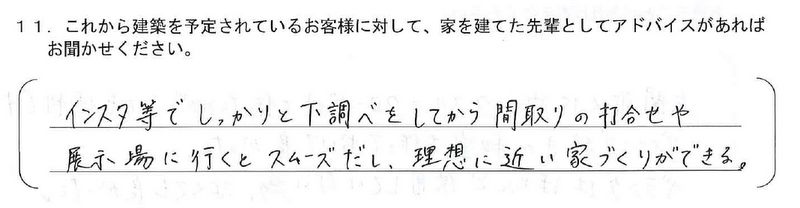 １１．これから建築を予定されているお客様に対して、家を建てた先輩としてアドバイスがあれば
お聞かせください。
インスタ等でしっかりと下調べをしてから間取りの打合せや
展示場に行くとスムーズだし、理想に近い家づくりができる。